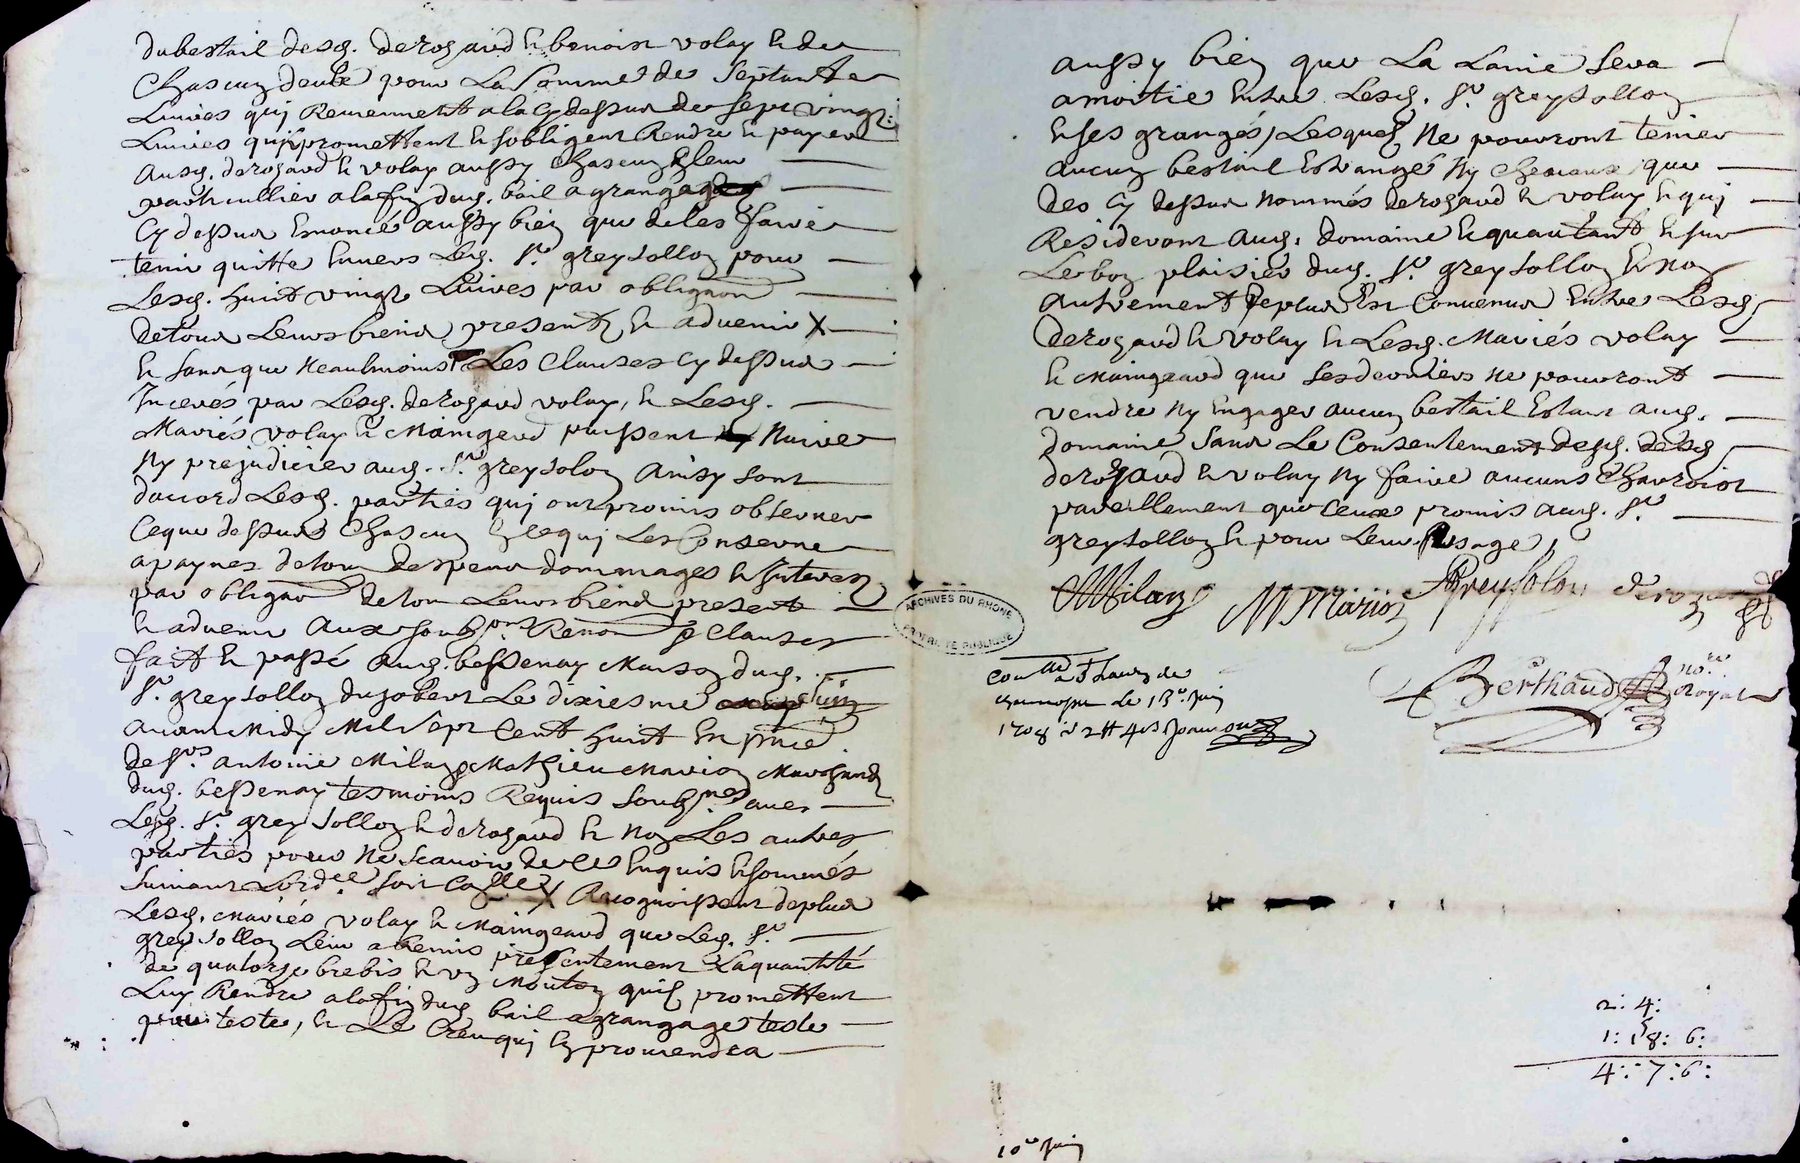 du bestail desd. derogard & benoist volay & de
chascun deulx pour La somme de septante
Livres quj Reviennent a la cy dessus de sept vingt
Livres quj promettent & sobligent Rendre & payer
ausd. derogard & volay aussy chascun leur
particullier a la fin dud. bail a grangage
cy dessus enoncé aussy bien que de les faire
tenir quitte envers Led. Sr. greysollon pour
Lesd. huict vingt Livres par obligaon
de tous Leurs biens presents & advenir X
& sans que neaulmoins Les clauses cy dessus
Incerés par Lesd. derogard volay, & Lesd.
Mariés volay & Maingeard puissent Nuire
Ny prejudicier aud. Sr. greysolon Ainsy sont
daccord Lesd. parties quj ont promis observer
ce que dessus chascun ce quj Les conserne
a paynes de tous despens dommages & Interest
par obligaon de tous Leurs biens present
& advenir Aux soub.ons Renon & clauses
fait & passé aud. bessenay Maison dud.
Sr. greysollon du jobert Le dixiesme Juin
avant Midy Mil sept cent huict En pnce
de Srs. antoine Milan & Mathieu Marion Marchands
dud. bessenay tesmoins Requis soub.nes avec
Led. Sr. greysollon & derogard & Non Les autres
parties pour ne scavoir de ce Enquis & sommés
suivant Lord.ce X Recognoissent de plus
Lesd. Mariés volay & Maingeard que Led. Sr.
greysollon Leur a Remis presentement La quantité
de quatorze brebis & un Mouton quil promettent
Luy Rendre a la fin dud bail a grangage teste
pour teste, & Le creu quj En proviendra
aussy bien que La Laine sera
amoitie Entre Lesd. Sr. greysollon
& ses grangés, Lesquels Ne pourront tenier
aucun bestail Estrangé Ny chevaux que
des cy dessus nommés derogard & volay & quj
Resideront aud. domaine & quautant & sur
Le bon plaisier dud. Sr. greysollon & Non
autrement de plus Est convenus Entre Lesd.
derogard & volay & Lesd. Mariés volay
& Maingeard que ses derniers Ne pourront
vendre Ny Engager aucun bestail Estant aud.
domaine sans Le Consentement desd.
derogard & volay Ny faire aucuns charrois
pareillement que ceux promis aud. Sr.
greysollon & pour Leur Usage,
AMilan M Marion Greysolon derogard
Berthaud no.re Royal
ARCHIVES DU RHONE
PROPRIÉTÉ PUBLIQUE
Con.lle a St Laurens de
chamousset Le 13e. Juin
1708
2: 4:
1: 18: 6:
4: 7: 6:
10e Juin